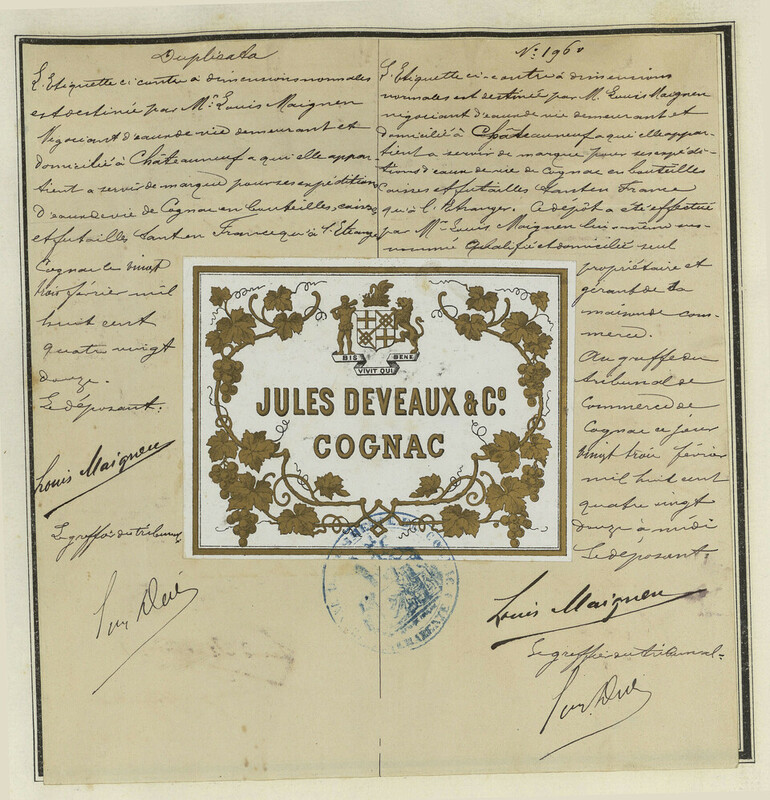 Duplicata
L'Etiquette ci-contre à dimensions normales
est destinée par Mr Louis Maignen
Négociant d'eau de vie demeurant et
domicilié à Châteauneuf a qui elle appar-
tient a servir de marque pour ses expéditions
d'eau de vie de Cognac en bouteilles, caisses
et futailles tant en France qu'à l'Etranger
Cognac le vingt
trois février mil
huit cent
quatre vingt
douze.
Le déposant:
Louis Maignen
Le greffier du tribunal
No 1960
L'Etiquette ci-contre à dimensions
normales est destinée par M. Louis Maignen
négociant d'eau de vie demeurant et
domicilié à Châteauneuf a qui elle appar-
tient a servir de marque pour ses expédi-
tions d'eau de vie de Cognac en bouteilles
Caisses et futailles tant en France
qu'à l'Etranger. Ce dépôt a été effectué
par Mr Louis Maignen lui même sus-
nommé qualifié et domicilié seul
propriétaire et
gérant de la
maison de com-
merce.
Au greffe du
tribunal de
Commerce de
Cognac ce jour
vingt trois février
mil huit cent
quatre vingt
douze à midi
Le déposant:
Louis Maignen
Le greffier du tribunal
BIS BENE
VIVIT QUI
JULES DEVEAUX & Co.
COGNAC